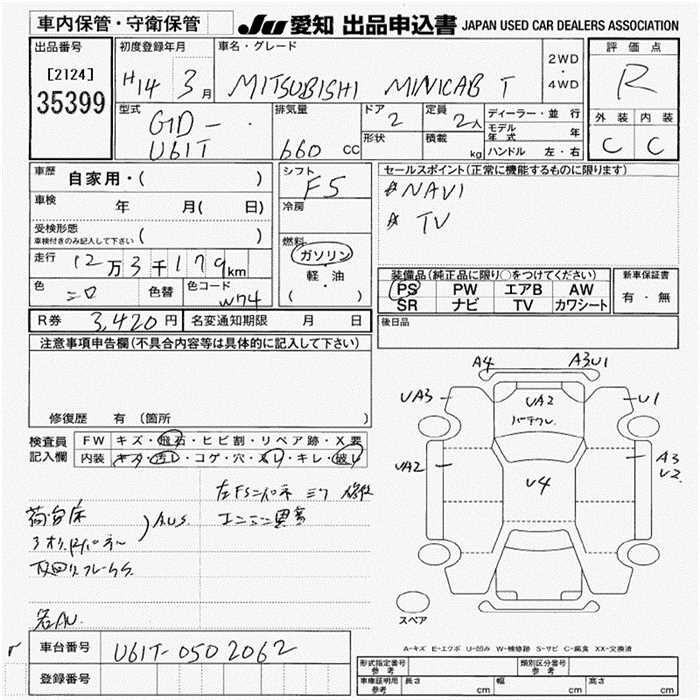 車内保管・守衛保管
JU 愛知 出品申込書 JAPAN USED CAR DEALERS ASSOCIATION
出品番号
[2124]
35399
初度登録年月
H14 3月
車名・グレード
MITSUBISHI MINICAB T
2WD
・
4WD
評価点
R
外装 内装
C C
型式
GD-
U61T
排気量
660 cc
ドア
2
定員
2人
形状
積載
kg
ディーラー・並行
モデル年式 年
ハンドル 左・右
車歴
自家用・( )
車検
年 月( 日)
受検形態
車検付きのみ記入して下さい ( )
走行
12万3千179km
色
シロ
色替
色コード
W74
シフト
F5
冷房
燃料
ガソリン
軽・油
( )
セールスポイント(正常に機能するものに限ります)
#NAVI
# TV
装備品(純正品に限り○をつけてください)
PS PW エアB AW
SR ナビ TV カワシート
新車保証書
有・無
R券 3,420円
名変通知期限 月 日
後日品
注意事項申告欄(不具合内容等は具体的に記入して下さい)
修復歴 有(箇所 )
検査員
記入欄
FW キズ・飛石・ヒビ割・リペア跡・X要
内装 キズ・汚レ・コゲ・穴・スレ・キレ・破レ
荷台床
AUS
エンジン異音
A4
A3U1
UA3
U1
UA2
UA2
A3
U2
U4
スペア
A-キズ E-エクボ U-凹み W-補修跡 S-サビ C-腐食 XX-交換済
車台番号
U61T-0502062
登録番号
形式指定番号
参考
類別区分番号
参考
車庫証明用
参考
長さ cm
幅 cm
高さ cm